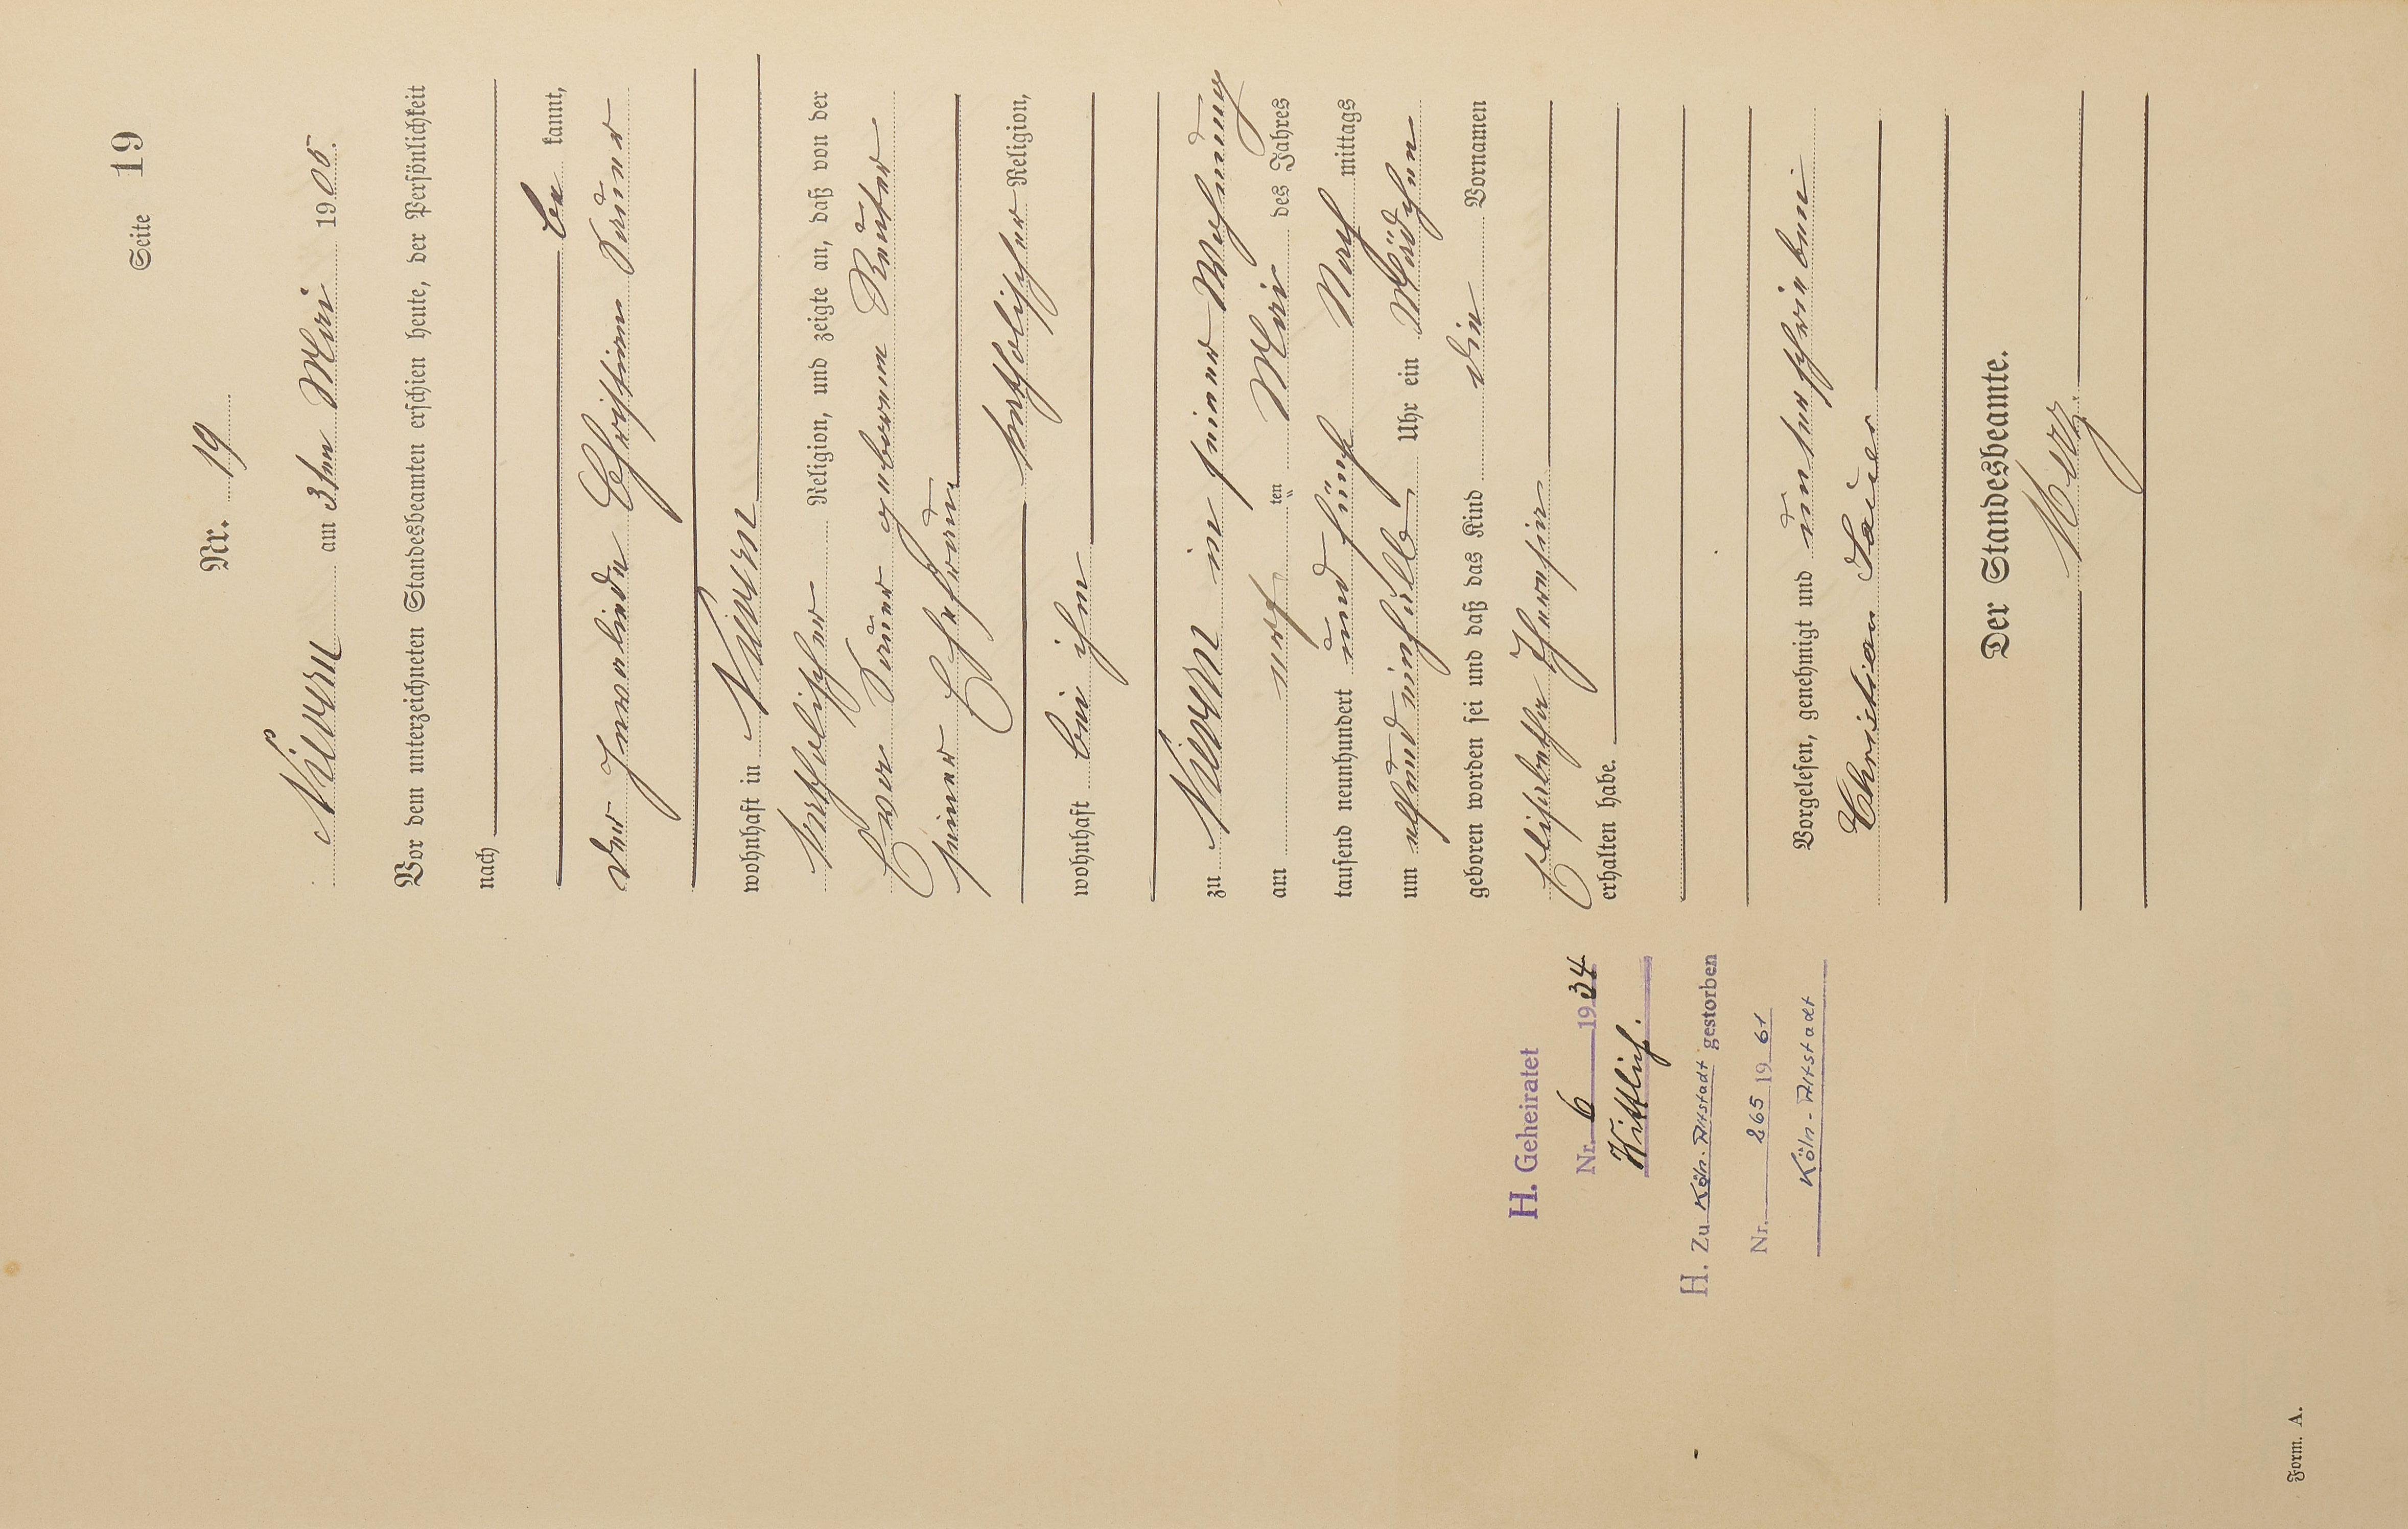 Seite 19
Nr. 19
Nievern am 3ten Mai 1905.
Vor dem unterzeichneten Standesbeamten erschien heute, der Persönlichkeit
nach
be kannt,
der Invalide Christian Sauer
wohnhaft in Nievern
katholischer Religion, und zeigte an, daß von der
Eva Sauer geborenen Reuter
seiner Ehefrau
katholischer Religion,
wohnhaft bei ihm
zu Nievern in seiner Wohnung
am erst ten Mai des Jahres
tausend neunhundert und fünf Nach mittags
um elfundeinhalb Uhr ein Mädchen
geboren worden sei und daß das Kind die Vornamen
Elisabetha Theresia
erhalten habe.
Vorgelesen, genehmigt und unterschrieben
Christian Sauer
Der Standesbeamte.
H. Geheiratet
Nr. 6 1934
H. Zu Köln-Altstadt gestorben
Nr. 865 1961
Köln-Altstadt
Form. A.